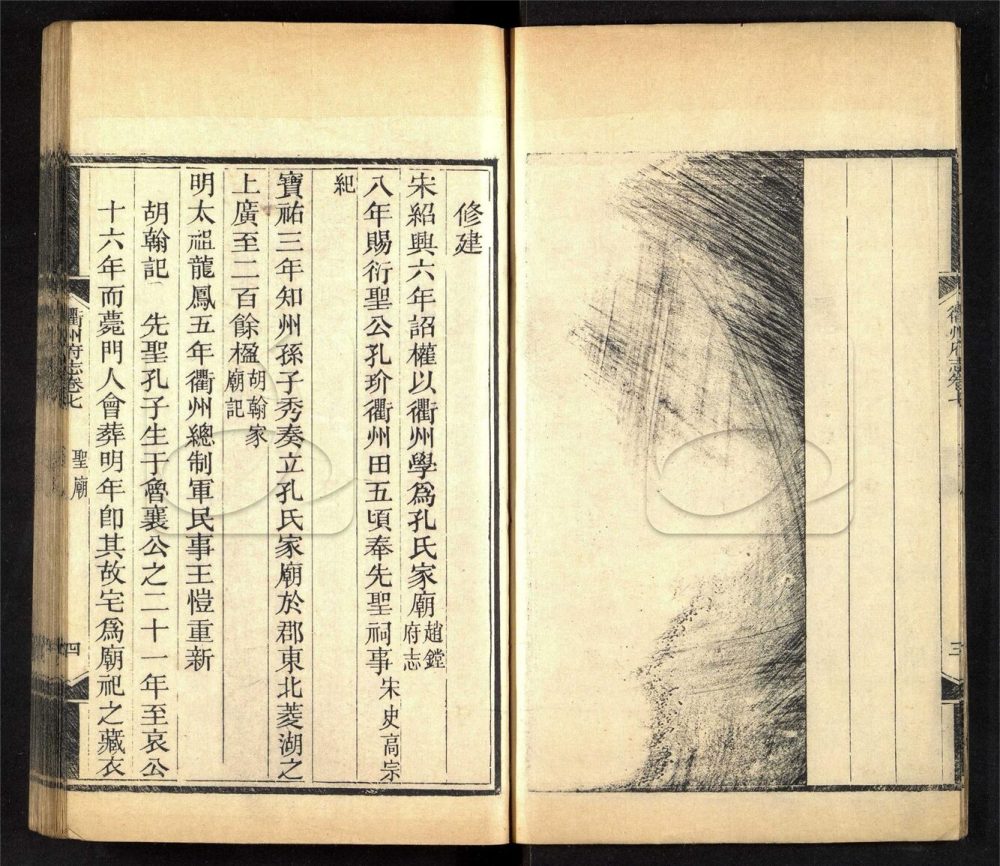 衢州府志卷七
三
修建
宋紹興六年詔權以衢州學爲孔氏家廟趙鏜府志
八年賜衍聖公孔玠衢州田五頃奉先聖祠事宋史高宗
紀
寶祐三年知州孫子秀奏立孔氏家廟於郡東北菱湖之
上廣至二百餘楹胡翰家廟記
明太祖龍鳳五年衢州總制軍民事王愷重新
胡翰記 先聖孔子生于魯襄公之二十一年至哀公
十六年而薨門人會葬明年卽其故宅爲廟祀之藏衣
衢州府志卷七
聖廟
四